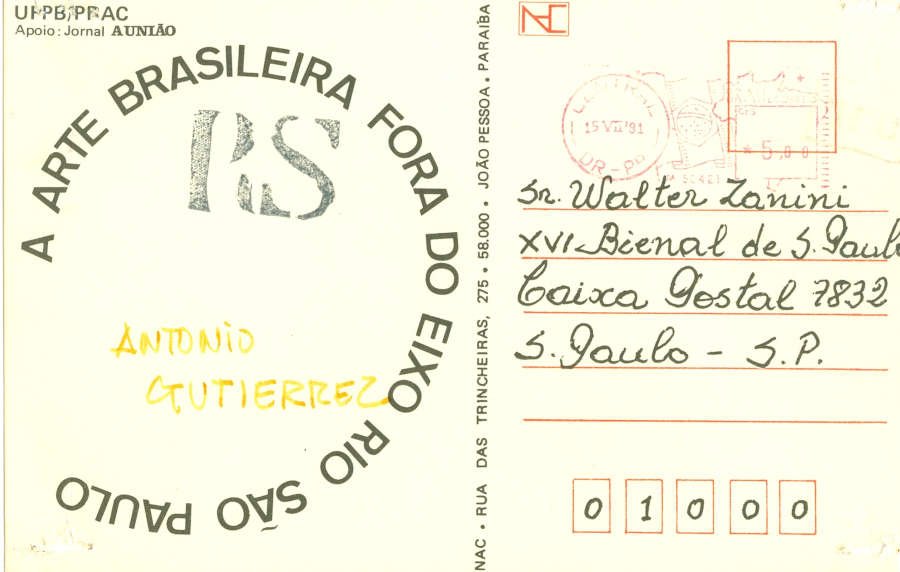 UFPB/PRAC
Apoio: Jornal A UNIÃO
A ARTE BRASILEIRA FORA DO EIXO RIO SÃO PAULO
RS
ANTONIO
GUTIERREZ
NAC • RUA DAS TRINCHEIRAS, 275 • 58.000 • JOÃO PESSOA • PARAÍBA
15 VII '81
5,00
Sr. Walter Zanini
XVI Bienal de S. Paulo
Caixa Postal 7832
S. Paulo - S.P.
0 1 0 0 0